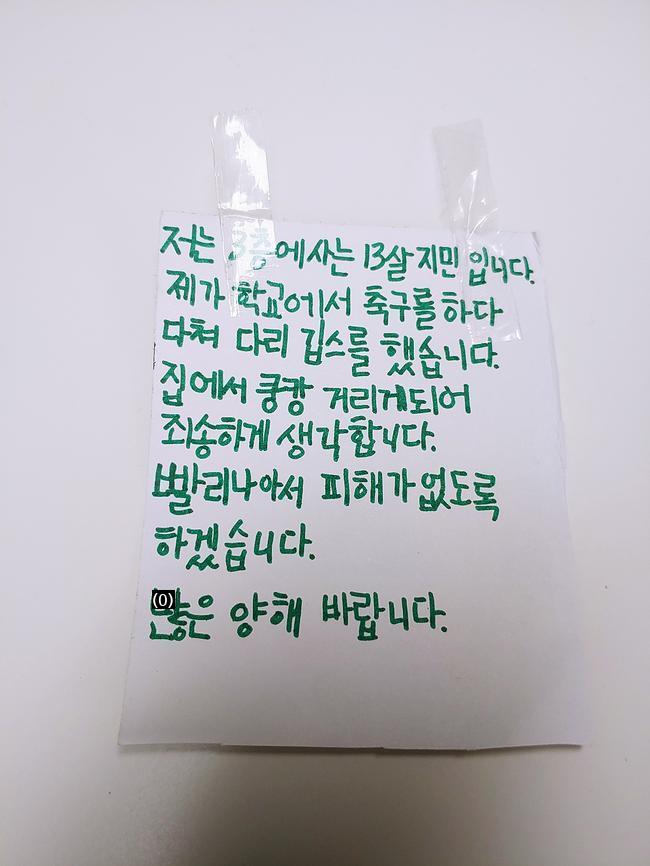 저는 3층에 사는 13살 지민 입니다.
제가 학교에서 축구를 하다
다쳐 다리 깁스를 했습니다.
집에서 쿵쾅 거리게되어
죄송하게 생각합니다.
빨리나아서 피해가 없도록
하겠습니다.
(0)
많은 양해 바랍니다.